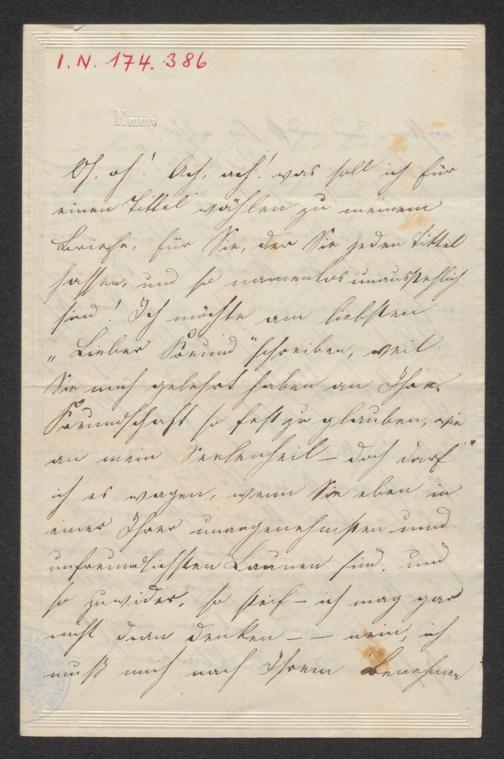 I. N. 174.386
Emmy
Oh, oh! Ach, ach! was soll ich für
einen Tittel wählen zu meinem
Briefe, für Sie, der Sie jeden Tittel
hassen, und so namenlos unausstehlich
sind! Ich möchte am liebsten
„Lieber Freund" schreiben, weil
Sie mich gelehrt haben an Ihre
Freundschaft so fest zu glauben, wie
an mein Seelenheil – doch darf
ich es wagen, wenn Sie eben in
einer Ihrer unangenehmsten und
unfreundlichsten Launen sind, und
so zuwider, so steif – ich mag gar
nicht dran denken – – nein, ich
muß mich nach Ihrem Benehmen